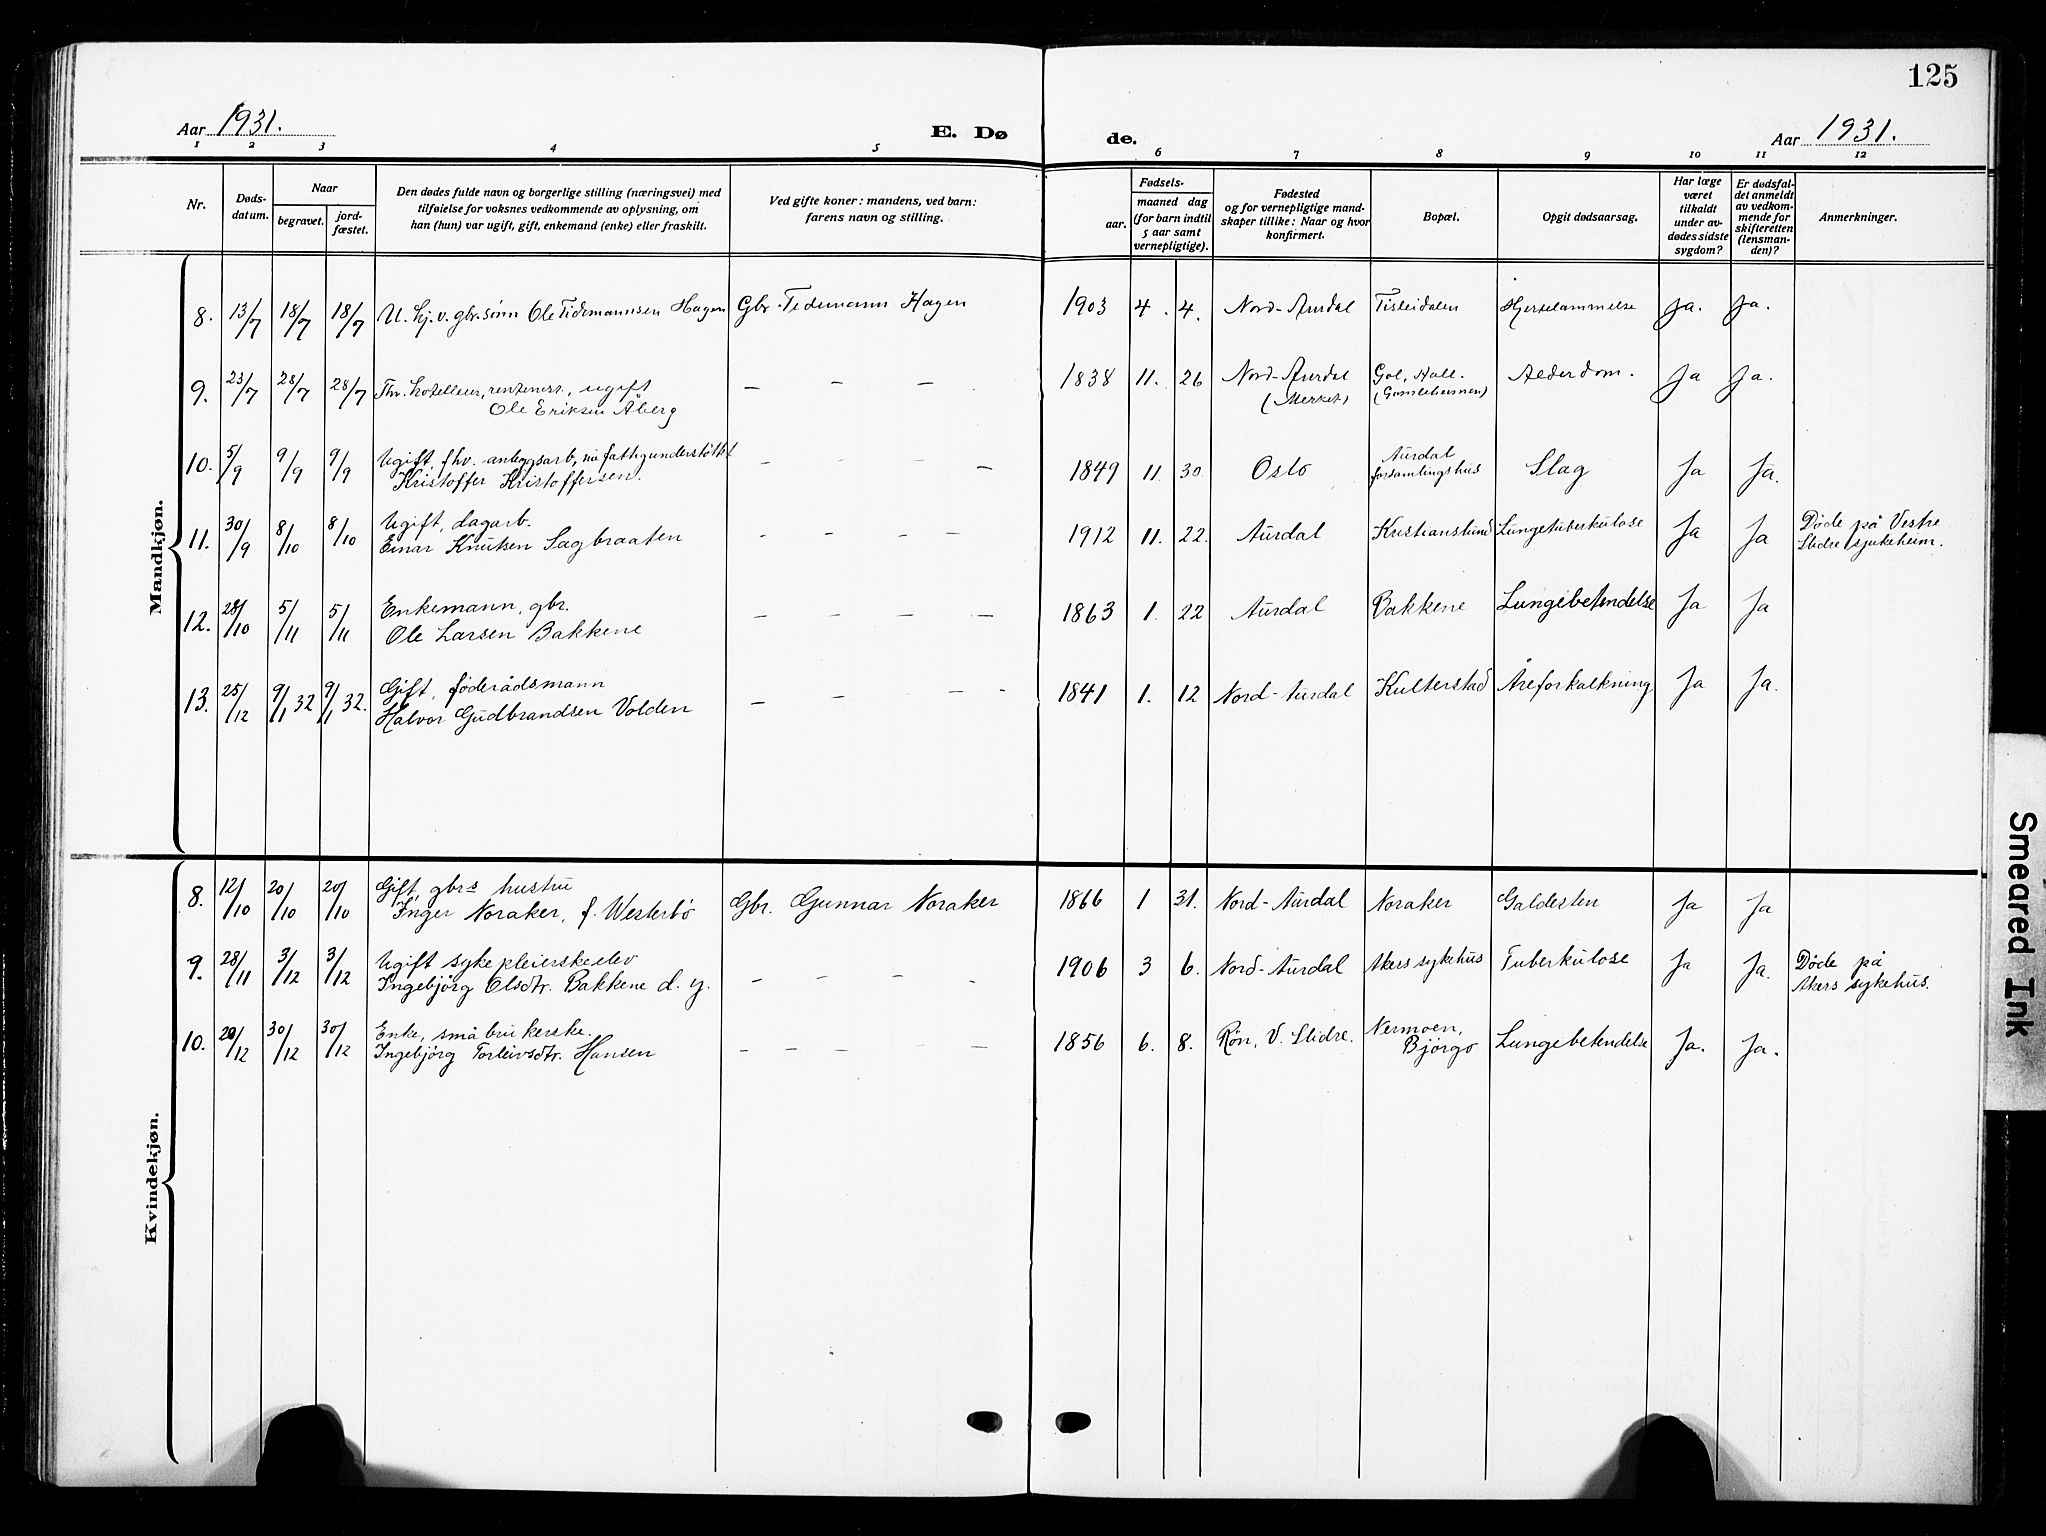 125
Aar 1931.
E. Dø
de.
Aar 1931.
1 2 3 4 5 6 7 8 9 10 11 12
Nr.
Døds-
datum.
Naar
begravet.
jord-
fæstet.
Den dødes fulde navn og borgerlige stilling (næringsvei) med
tilføielse for voksnes vedkommende av oplysning, om
han (hun) var ugift, gift, enkemand (enke) eller fraskilt.
Ved gifte koner: mandens, ved barn:
farens navn og stilling.
Fødsels-
aar.
maaned dag
(for barn indtil
5 aar samt
vernepligtige).
Fødested
og for vernepligtige mand-
skaper tillike: Naar og hvor
konfirmert.
Bopæl.
Opgit dødsaarsag.
Har læge
været
tilkaldt
under av-
dødes sidste
sygdom?
Er dødsfal-
det anmeldt
av vedkom-
mende for
skifteretten
(lensman-
den)?
Anmerkninger.
Mandkjøn.
8. 13/7 18/7 18/7 U. hj. v. gbr. sønn Ole Tidemannsen Hagen Gbr. Tedemann Hagen 1903 4. 4. Nord-Aurdal Tisleidalen Hjertelammelse Ja. Ja.
9. 23/7 28/7 28/7 Fhv. hotelleier, rentenist, ugift — — — 1838 11. 26 Nord-Aurdal Gol, Hall. Alderdom. Ja Ja.
Ole Eriksen Åberg (Merket) (Gamleheimen)
10. 5/9 9/9 9/9 Ugift, fhv. anleggsarb, nu fattigunderstöttet — — — 1849 11. 30. Oslo Aurdal Slag Ja Ja.
Kristoffer Kristoffersen. forsamlingshus
11. 30/9 8/10 8/10 Ugift, dagarb. — — — — 1912 11. 22. Aurdal Kristianslund Lungetuberkulose Ja Ja Døde på Vestre
Einar Knutsen Sagbraaten Slidre sjukeheim.
12. 28/10 5/11 5/11 Enkemann, gbr. — — — — 1863 1. 22 Aurdal Bakkene Lungebetendelse Ja Ja
Ole Larsen Bakkene
13. 25/12 9/1 32 9/1 32. Gift, föderådsmann — — — — 1841 1. 12 Nord-Aurdal Kulterstad Åreforkalkning Ja Ja.
Halvor Gudbrandsen Volden
Kvindekjøn.
8. 12/10 20/10 20/10 Gift, gbrs hustru Gbr. Gunnar Noraker 1866 1 31. Nord-Aurdal Noraker Galdesten Ja Ja
Inger Noraker, f. Westerbö
9. 28/11 3/12 3/12 Ugift sykepleierskeelev — — — - 1906 3 6. Nord-Aurdal Akers sykehus Tuberkulose Ja Ja. Døde på
Ingebjörg Olsdtr. Bakkene d. y. Akers sykehus.
10. 20/12 30/12 30/12 Enke, småbrukerske. — — — — — 1856 6. 8. Røn, V. Slidre. Nermoen, Lungebetendelse Ja. Ja.
Ingebjörg Torleivsdtr. Hansen Bjørgo
Smeared Ink